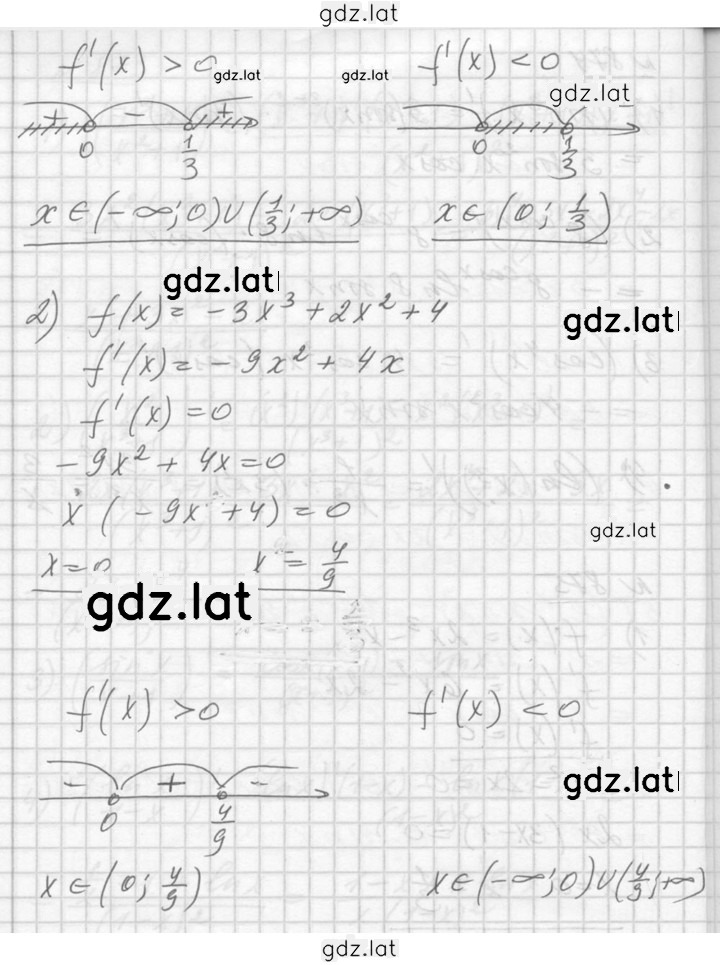 gdz.lat
f'(x) > 0 gdz.lat gdz.lat f'(x) < 0
gdz.lat
+ - + -
0 1/3 0 1/3
x∈(-∞; 0)∪(1/3; +∞) x∈(0; 1/3)
gdz.lat
2) f(x) = -3x³ + 2x² + 4
gdz.lat
f'(x) = -9x² + 4x
f'(x) = 0
-9x² + 4x = 0
x (-9x + 4) = 0
gdz.lat
x = 0 x = 4/9
gdz.lat
f'(x) > 0 f'(x) < 0
- + -
gdz.lat
0 4/9
x∈(0; 4/9) x∈(-∞; 0)∪(4/9; +∞)
gdz.lat